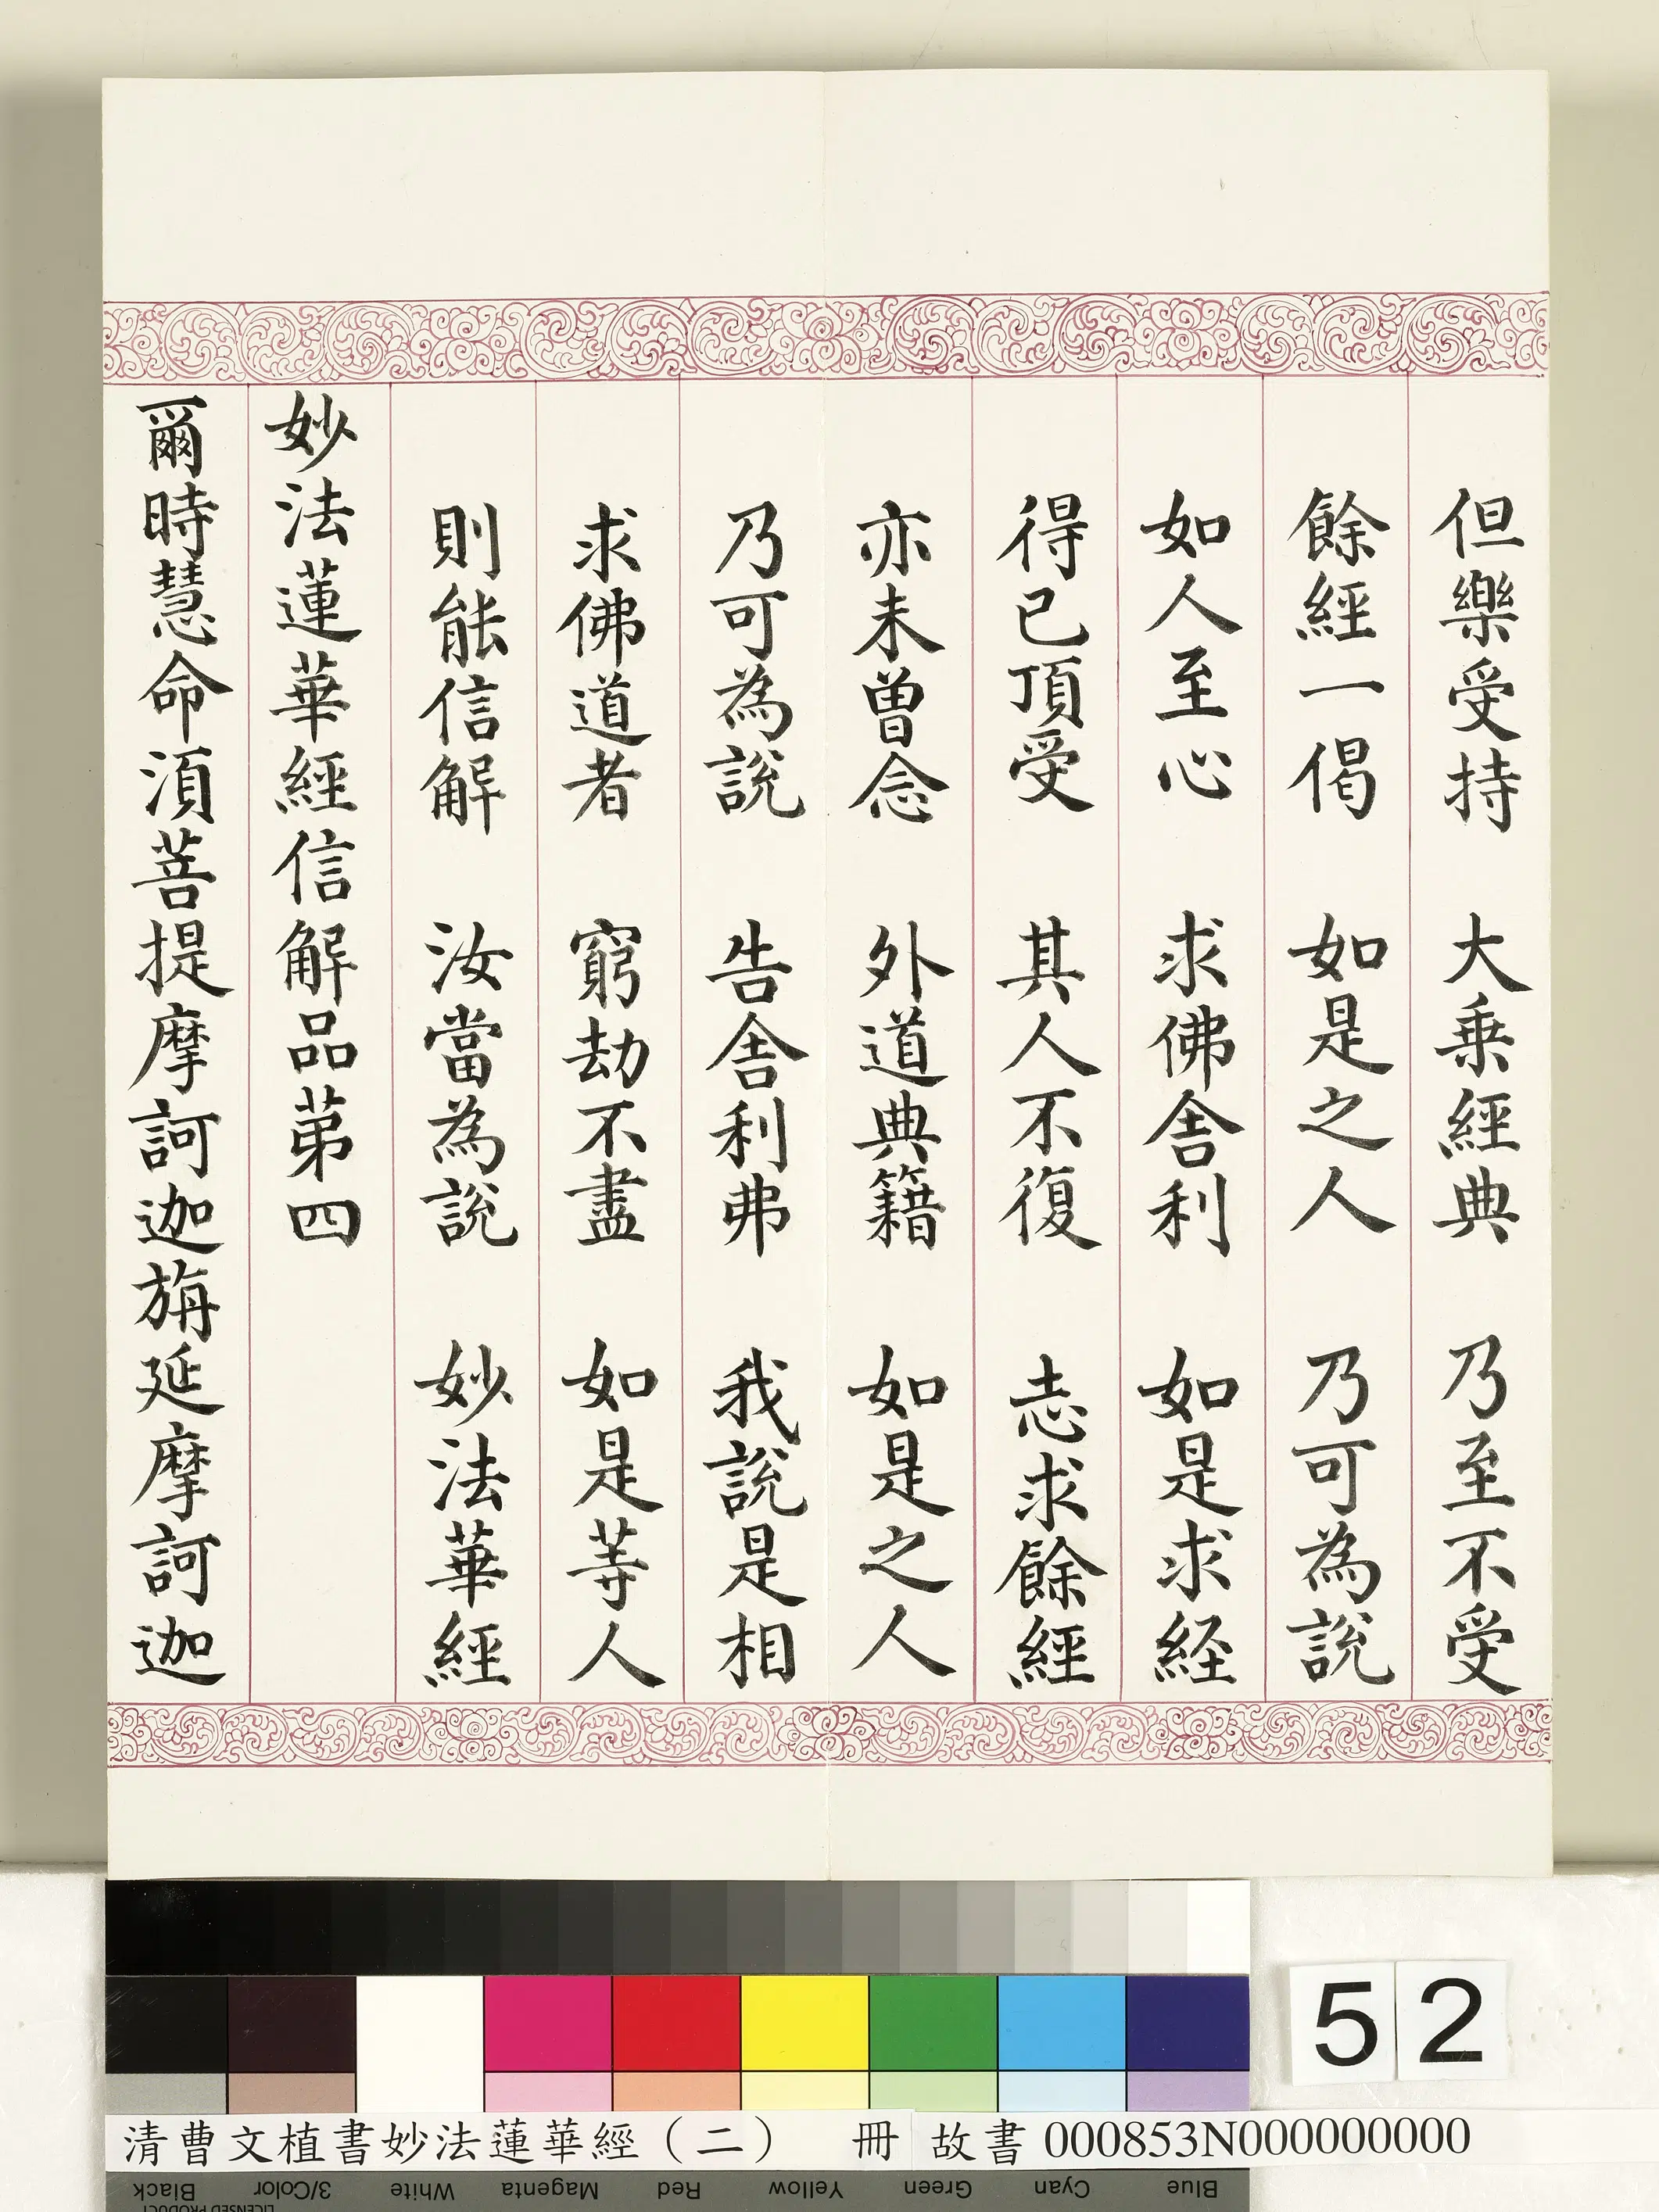 但樂受持　大乗經典　乃至不受
餘經一偈　如是之人　乃可為說
如人至心　求佛舎利　如是求経
得已頂受　其人不復　志求餘經
亦未曽念　外道典籍　如是之人
乃可為說　告舎利弗　我說是相
求佛道者　窮劫不盡　如是等人
則能信解　汝當為說　妙法華經
妙法蓮華經信解品苐四
爾時慧命湏菩提摩訶迦旃延摩訶迦
52
清曹文植書妙法蓮華經（二）　冊　故書 000853N000000000
Black 3/Color White Magenta Red Yellow Green Cyan Blue
LICENSED PRODUCT